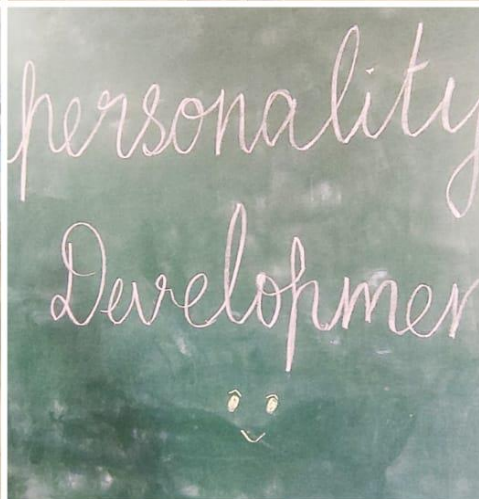 personality
Developmen